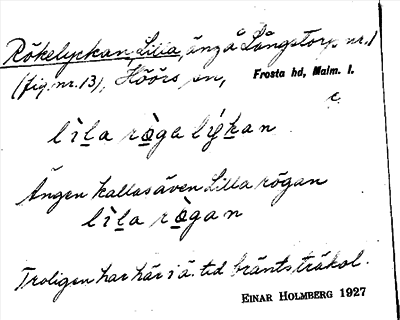 Rökelyckan, Lilla, äng å Långstorp nr. 1
(fig. nr. 13), Höörs sn, Frosta hd, Malm. l.
c.
lìla ròga lýkan
Ängen kallas även Lilla rögan
lìla rògan
Troligen har här i ä. tid bränts träkol.
EINAR HOLMBERG 1927